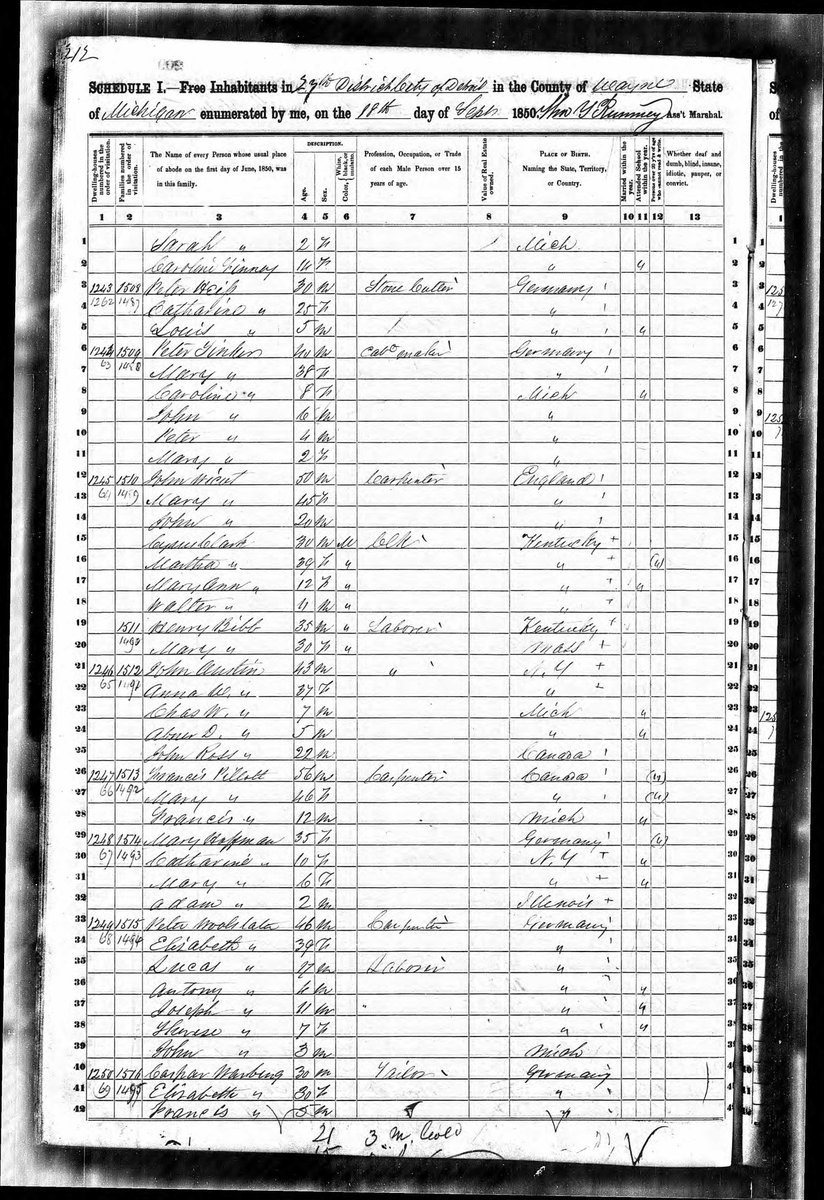 212
SCHEDULE I.—Free Inhabitants in 27th District City of Detroit in the County of Wayne State
of Michigan enumerated by me, on the 18th day of Sept 1850. Ass't Marshal.
Dwelling-houses numbered in the order of visitation.
Families numbered in the order of visitation.
The Name of every Person whose usual place of abode on the first day of June, 1850, was in this family.
DESCRIPTION.
Age.
Sex.
Color, White, black, or mulatto.
Profession, Occupation, or Trade of each Male Person over 15 years of age.
Value of Real Estate owned.
PLACE OF BIRTH. Naming the State, Territory, or Country.
Married within the year.
Attended School within the year.
Persons over 20 y'rs of age who cannot read & write.
Whether deaf and dumb, blind, insane, idiotic, pauper, or convict.
1 2 3 4 5 6 7 8 9 10 11 12 13
1 Sarah " 2 F Mich 1
2 Caroline Finney 14 F " " 2
3 1243 1508 Peter 30 M Stone Cutter Germany 3
4 1262 1487 Catharine " 25 F " 4
5 Louis " 5 M " " 5
6 1244 1509 Peter 40 M Cabt maker Germany 6
7 63 1488 Mary " 38 F " 7
8 Caroline " 8 F Mich " 8
9 John " 6 M " 9
10 Peter " 4 M " 10
11 Mary " 2 F " 11
12 1245 1510 John 50 M Carpenter England 12
13 64 1489 Mary " 45 F " 13
14 John " 20 M " 14
15 Clark 30 M M Clk Kentucky 15
16 Martha " 39 F " " (") 16
17 Mary Ann " 12 F " " " 17
18 Walter " 4 M " " 18
19 1511 Henry Bibb 35 M " Laborer Kentucky 19
20 1490 Mary " 30 F " Mass 20
21 1246 1512 John Austin 43 M " N.Y 21
22 65 1491 Anna " 37 F " 22
23 Chas W. " 7 M Mich " 23
24 Abner D. " 5 M " " 24
25 John Ross " 22 M Canada 25
26 1247 1513 Francis 56 M Carpenter Canada (") 26
27 66 1492 Mary " 46 F " (") 27
28 Francis " 12 M Mich " 28
29 1248 1514 Mary Hoffman 35 F Germany (") 29
30 67 1493 Catharine " 10 F N.Y " 30
31 Mary " 6 F " " 31
32 Adam " 2 M Illinois 32
33 1249 1515 Peter 46 M Carpenter Germany 33
34 68 1494 Elisabeth " 39 F " 34
35 Lucas " 17 M Laborer " 35
36 Antony " M " " 36
37 Joseph " 11 M " " 37
38 Therese " 7 F " " 38
39 John " 3 M Mich 39
40 1250 1516 Caspar 30 M Tailor Germany 40
41 69 1495 Elisabeth " 30 F " 41
42 Francis " 5 M " 42
21 3 m.